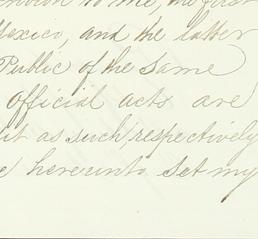 known to me, the first
Mexico, and the latter
Public of the same
official acts are
it as such respectively
hereunto set my